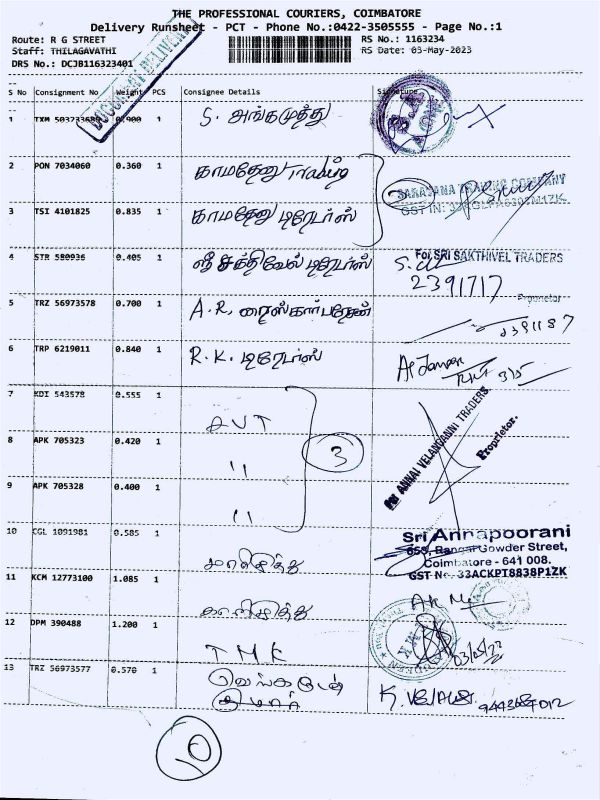 THE PROFESSIONAL COURIERS, COIMBATORE
Delivery Runsheet - PCT - Phone No.:0422-3505555 - Page No.:1
Route: R G STREET
RS No.: 1163234
Staff: THILAGAVATHI
RS Date: 03-May-2023
DRS No.: DCJB116323401
DOCUMENT DELIVERY
S No Consignment No Weight PCS Consignee Details Signature
1 TXM 0.900 1 S. அங்கமுத்து
2 PON 7034060 0.360 1 காமதேனு Trading
SARASANA TRADING COMPANY
3 TSI 4101825 0.835 1 காமதேனு டிரேடர்ஸ்
2
4 STR 580936 0.405 1 ஸ்ரீ சக்திவேல் டிரேடர்ஸ்
For SRI SAKTHIVEL TRADERS
2391717
Proprietor
5 TRZ 56973578 0.700 1 A.R.
2391187
6 TRP 6219011 0.840 1 R.K. டிரேடர்ஸ்
7 KDI 543578 0.555 1 AVT
For ANNAI VELANGANNI TRADERS
Proprietor.
8 APK 705323 0.420 1 "
3
9 APK 705328 0.400 1 "
10 CGL 1091981 0.585 1 காளிமுத்து
Sri Annapoorani
Gowder Street,
Coimbatore - 641 008.
GST No - 33ACKPT8838P1ZK
11 KCM 12773100 1.085 1 காளிமுத்து
12 DPM 390488 1.200 1 TMK
13 TRZ 56973577 0.570 1 வெங்கடேஷ்
குமார்
10